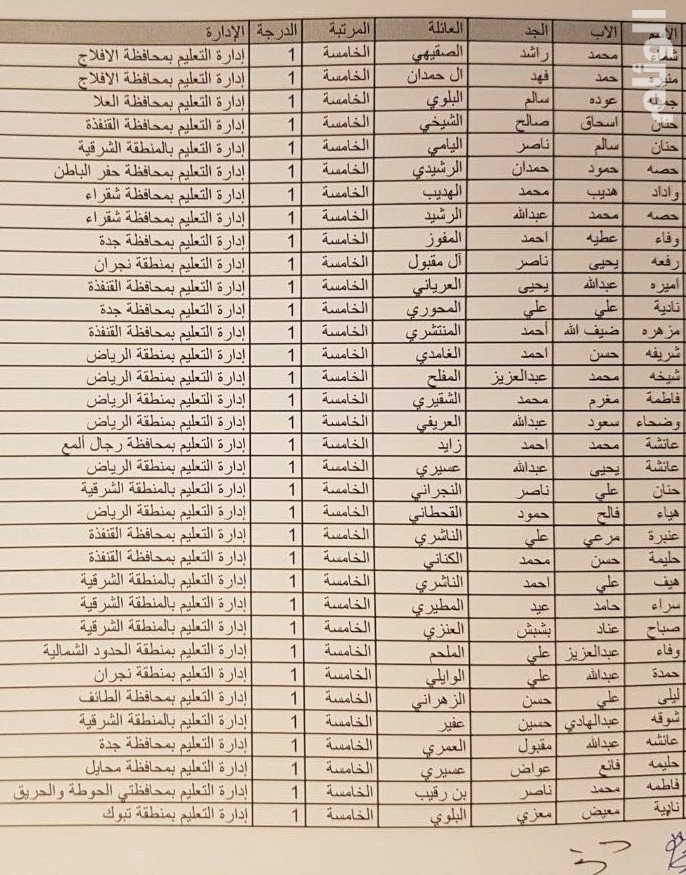 الاسم الاب الجد العائلة المرتبة الدرجة الإدارة
محمد راشد الصقيهي الخامسة 1 إدارة التعليم بمحافظة الافلاج
حمد فهد ال حمدان الخامسة 1 إدارة التعليم بمحافظة الافلاج
جميله عوده سالم البلوي الخامسة 1 إدارة التعليم بمحافظة العلا
حنان اسحاق صالح الشيخي الخامسة 1 إدارة التعليم بمحافظة القنفذة
حنان سالم ناصر اليامي الخامسة 1 إدارة التعليم بالمنطقة الشرقية
حصه حمود حمدان الرشيدي الخامسة 1 إدارة التعليم بمحافظة حفر الباطن
واداد هديب محمد الهديب الخامسة 1 إدارة التعليم بمحافظة شقراء
حصه محمد عبدالله الرشيد الخامسة 1 إدارة التعليم بمحافظة شقراء
وفاء عطيه احمد المفوز الخامسة 1 إدارة التعليم بمحافظة جدة
رفعه يحيى ناصر آل مقبول الخامسة 1 إدارة التعليم بمنطقة نجران
اميره عبدالله يحيى العرياني الخامسة 1 إدارة التعليم بمحافظة القنفذة
نادية علي علي المحوري الخامسة 1 إدارة التعليم بمحافظة جدة
مزهره ضيف الله أحمد المنتشري الخامسة 1 إدارة التعليم بمحافظة القنفذة
شريفه حسن احمد الغامدي الخامسة 1 إدارة التعليم بمنطقة الرياض
شيخه محمد عبدالعزيز المفلح الخامسة 1 إدارة التعليم بمنطقة الرياض
فاطمة مغرم محمد الشقيري الخامسة 1 إدارة التعليم بمنطقة الرياض
وضحاء سعود عبدالله العريفي الخامسة 1 إدارة التعليم بمنطقة الرياض
عائشة محمد احمد زايد الخامسة 1 إدارة التعليم بمحافظة رجال ألمع
عائشة يحيى عبدالله عسيري الخامسة 1 إدارة التعليم بمنطقة الرياض
حنان علي ناصر النجراني الخامسة 1 إدارة التعليم بالمنطقة الشرقية
هياء فالح حمود القحطاني الخامسة 1 إدارة التعليم بمنطقة الرياض
عنبرة مرعي علي الناشري الخامسة 1 إدارة التعليم بمحافظة القنفذة
حليمة حسن محمد الكناني الخامسة 1 إدارة التعليم بمحافظة القنفذة
هيف علي احمد الناشري الخامسة 1 إدارة التعليم بالمنطقة الشرقية
سراء حامد عيد المطيري الخامسة 1 إدارة التعليم بالمنطقة الشرقية
صباح عناد بشبش العنزي الخامسة 1 إدارة التعليم بالمنطقة الشرقية
وفاء عبدالعزيز علي الملحم الخامسة 1 إدارة التعليم بمنطقة الحدود الشمالية
حمدة عبدالله علي الوايلي الخامسة 1 إدارة التعليم بمنطقة نجران
ليلى علي حسن الزهراني الخامسة 1 إدارة التعليم بمحافظة الطائف
شوقه عبدالهادي حسين عفير الخامسة 1 إدارة التعليم بالمنطقة الشرقية
عائشه عبدالله مقبول العمري الخامسة 1 إدارة التعليم بمحافظة جدة
حليمه فائع عواض عسيري الخامسة 1 إدارة التعليم بمحافظة محايل
فاطمه محمد ناصر بن رقيب الخامسة 1 إدارة التعليم بمحافظتي الحوطة والحريق
نادية معيض معزي البلوي الخامسة 1 إدارة التعليم بمنطقة تبوك